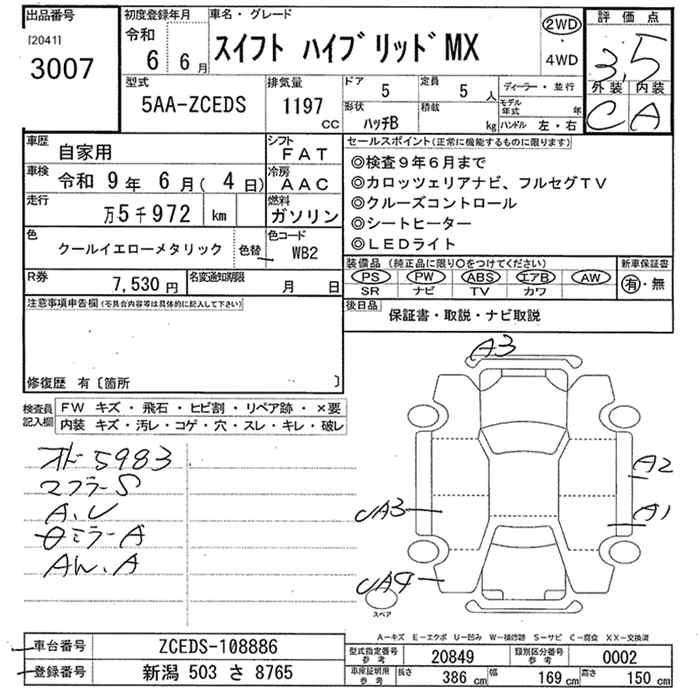 出品番号
[2041]
3007
初度登録年月
令和
6 6月
車名・グレード
スイフト ハイブリッドMX
2WD
・
4WD
評価点
3.5
外装 内装
C A
型式
5AA-ZCEDS
排気量
1197
CC
ドア
5
定員
5 人
形状
ハッチB
積載
kg
ディーラー・並行
モデル年式 年
ハンドル 左・右
車歴
自家用
シフト
FAT
車検
令和 9年 6月( 4日)
冷房
AAC
走行
万5千972 km
燃料
ガソリン
色
クールイエローメタリック
色替
色コード
WB2
R券
7,530円
名変通知期限
月 日
セールスポイント(正常に機能するものに限ります)
◎検査9年6月まで
◎カロッツェリアナビ、フルセグTV
◎クルーズコントロール
◎シートヒーター
◎LEDライト
装備品 (純正品に限り○をつけてください)
PS PW ABS エアB AW
SR ナビ TV カワ
新車保証書
有・無
後日品
保証書・取説・ナビ取説
注意事項申告欄(不具合内容等は具体的に記入して下さい)
修復歴 有〔箇所 〕
検査員
記入欄
FW キズ・飛石・ヒビ割・リペア跡・×要
内装 キズ・汚レ・コゲ・穴・スレ・キレ・破レ
オド5983
マフラーS
A,U
ミラーA
AW,A
A3
A2
A1
UA3
UA4
スペア
A-キズ E-エクボ U-凹み W-補修跡 S-サビ C-腐食 XX-交換済
車台番号
ZCEDS-108886
登録番号
新潟 503 さ 8765
型式指定番号
参考
20849
類別区分番号
参考
0002
車庫証明用
参考
長さ 386 cm 幅 169 cm 高さ 150 cm